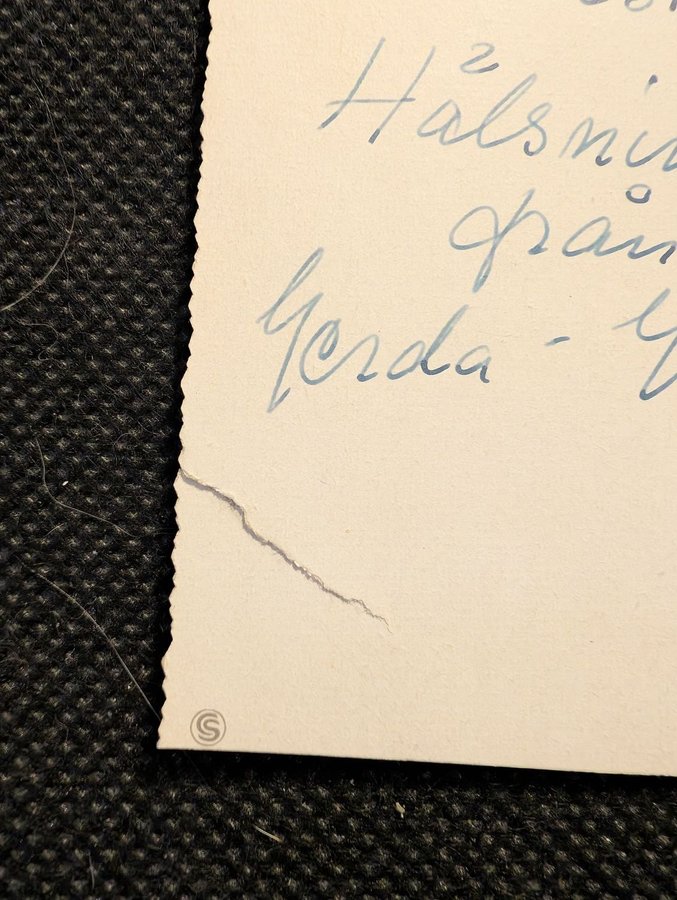 Hälsnin
från
Gerda - G
S